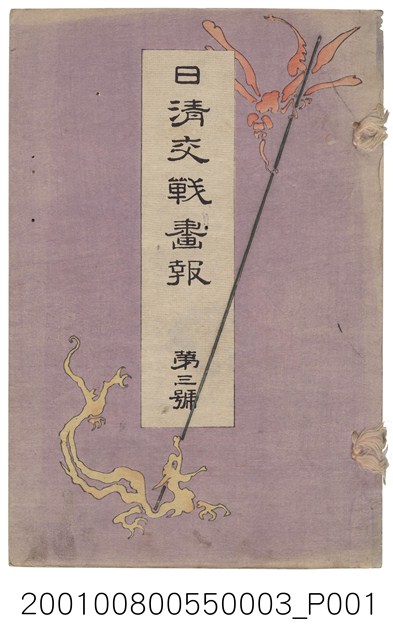 日清交戰畫報
第三號
200100800550003_P001